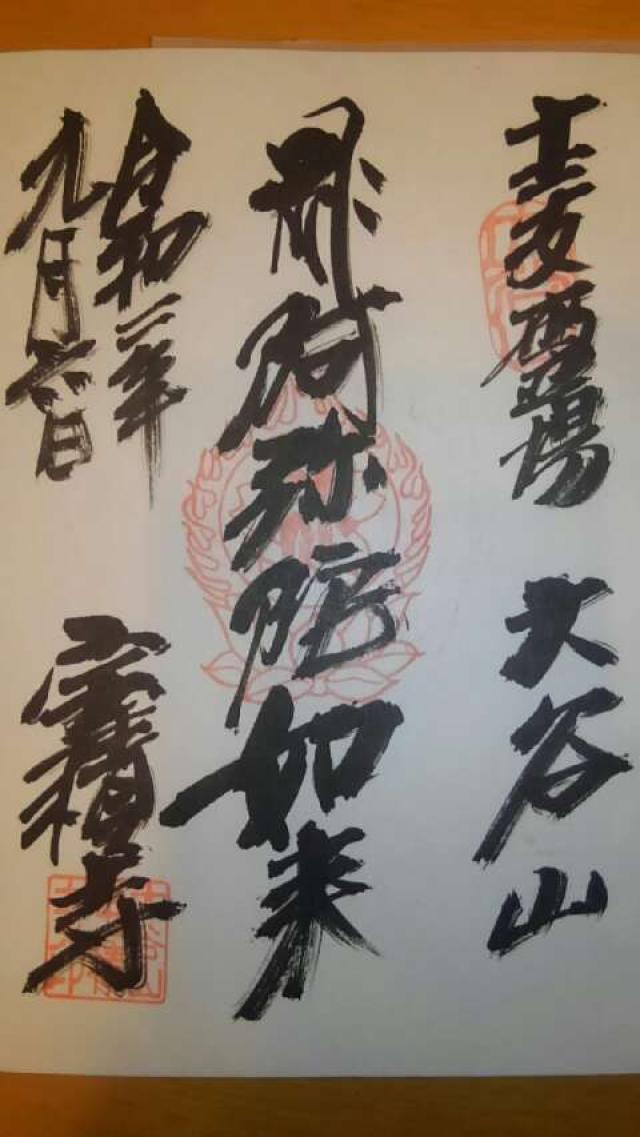 十二支霊場 大谷山
阿弥陀如来
令和二年
九月六日
寳積寺